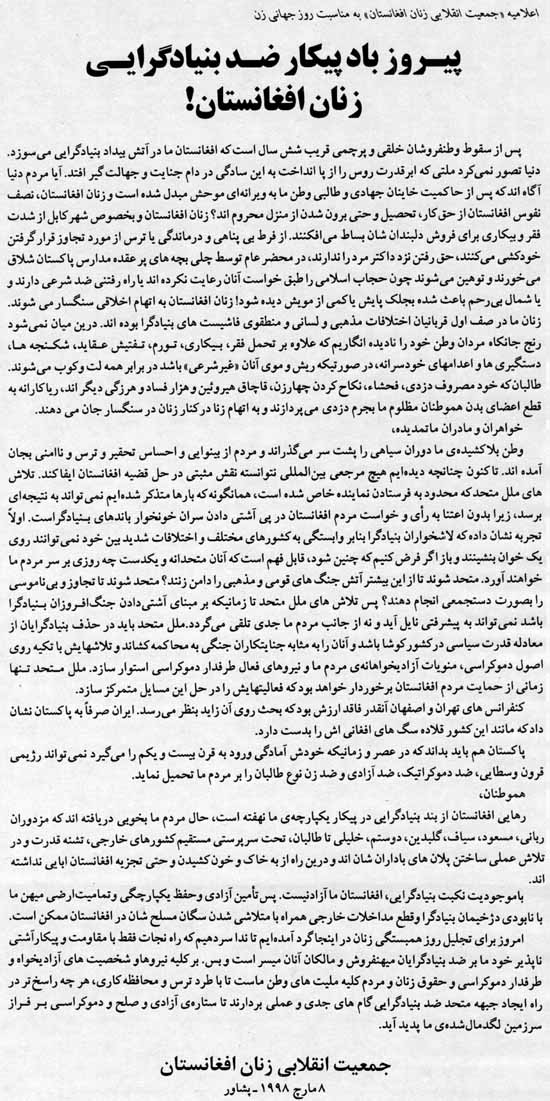 اعلامیه «جمعیت انقلابی زنان افغانستان» به مناسبت روز جهانی زن
پیروز باد پیکار ضد بنیادگرایی
زنان افغانستان!
پس از سقوط وطنفروشان خلقی و پرچمی قریب شش سال است که افغانستان ما در آتش بیداد بنیادگرایی می‌سوزد.
دنیا تصور نمی‌کرد ملتی که ابرقدرت روس را از پا انداخت به این سادگی در دام جنایت و جهالت گیر افتد. آیا مردم دنیا
آگاه اند که پس از حاکمیت خاینان جهادی و طالبی وطن ما به ویرانه‌ای موحش مبدل شده است و زنان افغانستان، نصف
نفوس افغانستان از حق کار، تحصیل و حتی برون شدن از منزل محروم اند؟ زنان افغانستان و بخصوص شهر کابل از شدت
فقر و بیکاری برای فروش دلبندان شان بساط می‌افکنند. از فرط بی پناهی و درماندگی یا ترس از مورد تجاوز قرار گرفتن
خودکشی می‌کنند، حق رفتن نزد داکتر مرد را ندارند، در محضر عام توسط چلی بچه های پر عقده مدارس پاکستان شلاق
می‌خورند و توهین می‌شوند چون حجاب اسلامی را طبق خواست آنان رعایت نکرده اند یا راه رفتنی ضد شرعی دارند و
یا شمال بی‌رحم باعث شده بجلک پایش یا کمی از مویش دیده شود! زنان افغانستان به اتهام اخلاقی سنگسار می شوند.
زنان ما در صف اول قربانیان اختلافات مذهبی و لسانی و منطقوی فاشیست های بنیادگرا بوده اند. درین میان نمی‌شود
رنج جانکاه مردان وطن خود را نادیده انگاریم که علاوه بر تحمل فقر، بیکاری، تورم، تفتیش عقاید، شکنجه ها،
دستگیری ها و اعدامهای خودسرانه، در صورتیکه ریش و موی آنان «غیرشرعی» باشد در برابر همه لت وکوب می‌شوند.
طالبان که خود مصروف دزدی، فحشاء، نکاح کردن چهار زن، قاچاق هیروئین و هزار فساد و هرزگی دیگر اند، ریاکارانه به
قطع اعضای بدن هموطنان مظلوم ما بجرم دزدی می‌پردازند و به اتهام زنا در کنار زنان در سنگسار جان می دهند.
خواهران و مادران ماتمدیده،
وطن بلاکشیده‌ی ما دوران سیاهی را پشت سر می‌گذراند و مردم از بینوایی و احساس تحقیر و ترس و ناامنی بجان
آمده اند. تاکنون چنانچه دیده‌ایم هیچ مرجعی بین‌المللی نتوانسته نقش مثبتی در حل قضیه افغانستان ایفا کند. تلاش
های ملل متحد که محدود به فرستادن نماینده خاص شده است، همانگونه که بارها متذکر شده‌ایم نمی‌تواند به نتیجه‌ای
برسد، زیرا بدون اعتنا به رأی و خواست مردم افغانستان در پی آشتی دادن سران خونخوار باندهای بنیادگراست. اولاً
تجربه نشان داده که لاشخواران بنیادگرا بنابر وابستگی به کشورهای مختلف و اختلافات شدید بین خود نمی‌توانند روی
یک خوان بنشینند و باز اگر فرض کنیم که چنین شود، قابل فهم است که آنان متحدانه و یکدست چه روزی بر سر مردم ما
خواهند آورد. متحد شوند تا از این بیشتر آتش جنگ های قومی و مذهبی را دامن زنند؟ متحد شوند تا تجاوز و بی‌ناموسی
را بصورت دستجمعی انجام دهند؟ پس تلاش های ملل متحد تا زمانیکه بر مبنای آشتی‌دادن جنگ‌افروزان بنیادگرا
باشد نمی‌تواند به پیشرفتی نایل آید و نه از جانب مردم ما جدی تلقی می‌گردد. ملل متحد باید در حذف بنیادگرایان از
معادله قدرت سیاسی در کشور کوشا باشد و آنان را به مثابه جنایتکاران جنگی به محاکمه کشاند و تلاشهایش را تکیه روی
اصول دموکراسی، منویات آزادیخواهانه‌ی مردم ما و نیروهای فعال طرفدار دموکراسی استوار سازد. ملل متحد تنها
زمانی از حمایت مردم افغانستان برخوردار خواهد بود که فعالیتهایش را در حل این مسایل متمرکز سازد.
کنفرانس های تهران و اصفهان آنقدر فاقد ارزش بود که بحث روی آن زاید بنظر می‌رسد. ایران صرفاً به پاکستان نشان
داد که مانند این کشور قلاده سگ های افغانی اش را بدست دارد.
پاکستان هم باید بداند که در عصر و زمانیکه خودش آمادگی ورود به قرن بیست و یکم را می‌گیرد نمی‌تواند رژیمی
قرون وسطایی، ضد دموکراتیک، ضد آزادی و ضد زن نوع طالبان را بر مردم ما تحمیل نماید.
هموطنان،
رهایی افغانستان از بند بنیادگرایی در پیکار یکپارچه‌ی ما نهفته است، حال مردم ما بخوبی دریافته اند که مزدوران
ربانی، مسعود، سیاف، گلبدین، دوستم، خلیلی تا طالبان، تحت سرپرستی مستقیم کشورهای خارجی، تشنه قدرت و در
تلاش عملی ساختن پلان های باداران شان اند و درین راه از به خاک و خون کشیدن و حتی تجزیه افغانستان ابایی نداشته
اند.
با موجودیت نکبت بنیادگرایی، افغانستان ما آزاد نیست. پس تأمین آزادی و حفظ یکپارچگی و تمامیت ارضی میهن ما
با نابودی دژخیمان بنیادگرا و قطع مداخلات خارجی همراه با متلاشی شدن سگان مسلح شان در افغانستان ممکن است.
امروز برای تجلیل روز همبستگی زنان در اینجا گرد آمده‌ایم تا ندا سردهیم که راه نجات فقط با مقاومت و پیکار آشتی
ناپذیر خود ما بر ضد بنیادگرایان میهنفروش و مالکان آنان میسر است و بس. بر کلیه نیروها و شخصیت های آزادیخواه و
طرفدار دموکراسی و حقوق زنان و مردم کلیه ملیت های وطن ماست تا با طرد ترس و محافظه کاری، هر چه راسخ‌تر در
راه ایجاد جبهه متحد ضد بنیادگرایی گام های جدی و عملی بردارند تا ستاره‌ی آزادی و صلح و دموکراسی بر فراز
سرزمین لگدمال شده‌ی ما پدید آید.
جمعیت انقلابی زنان افغانستان
۸ مارچ ۱۹۹۸ ـ پشاور